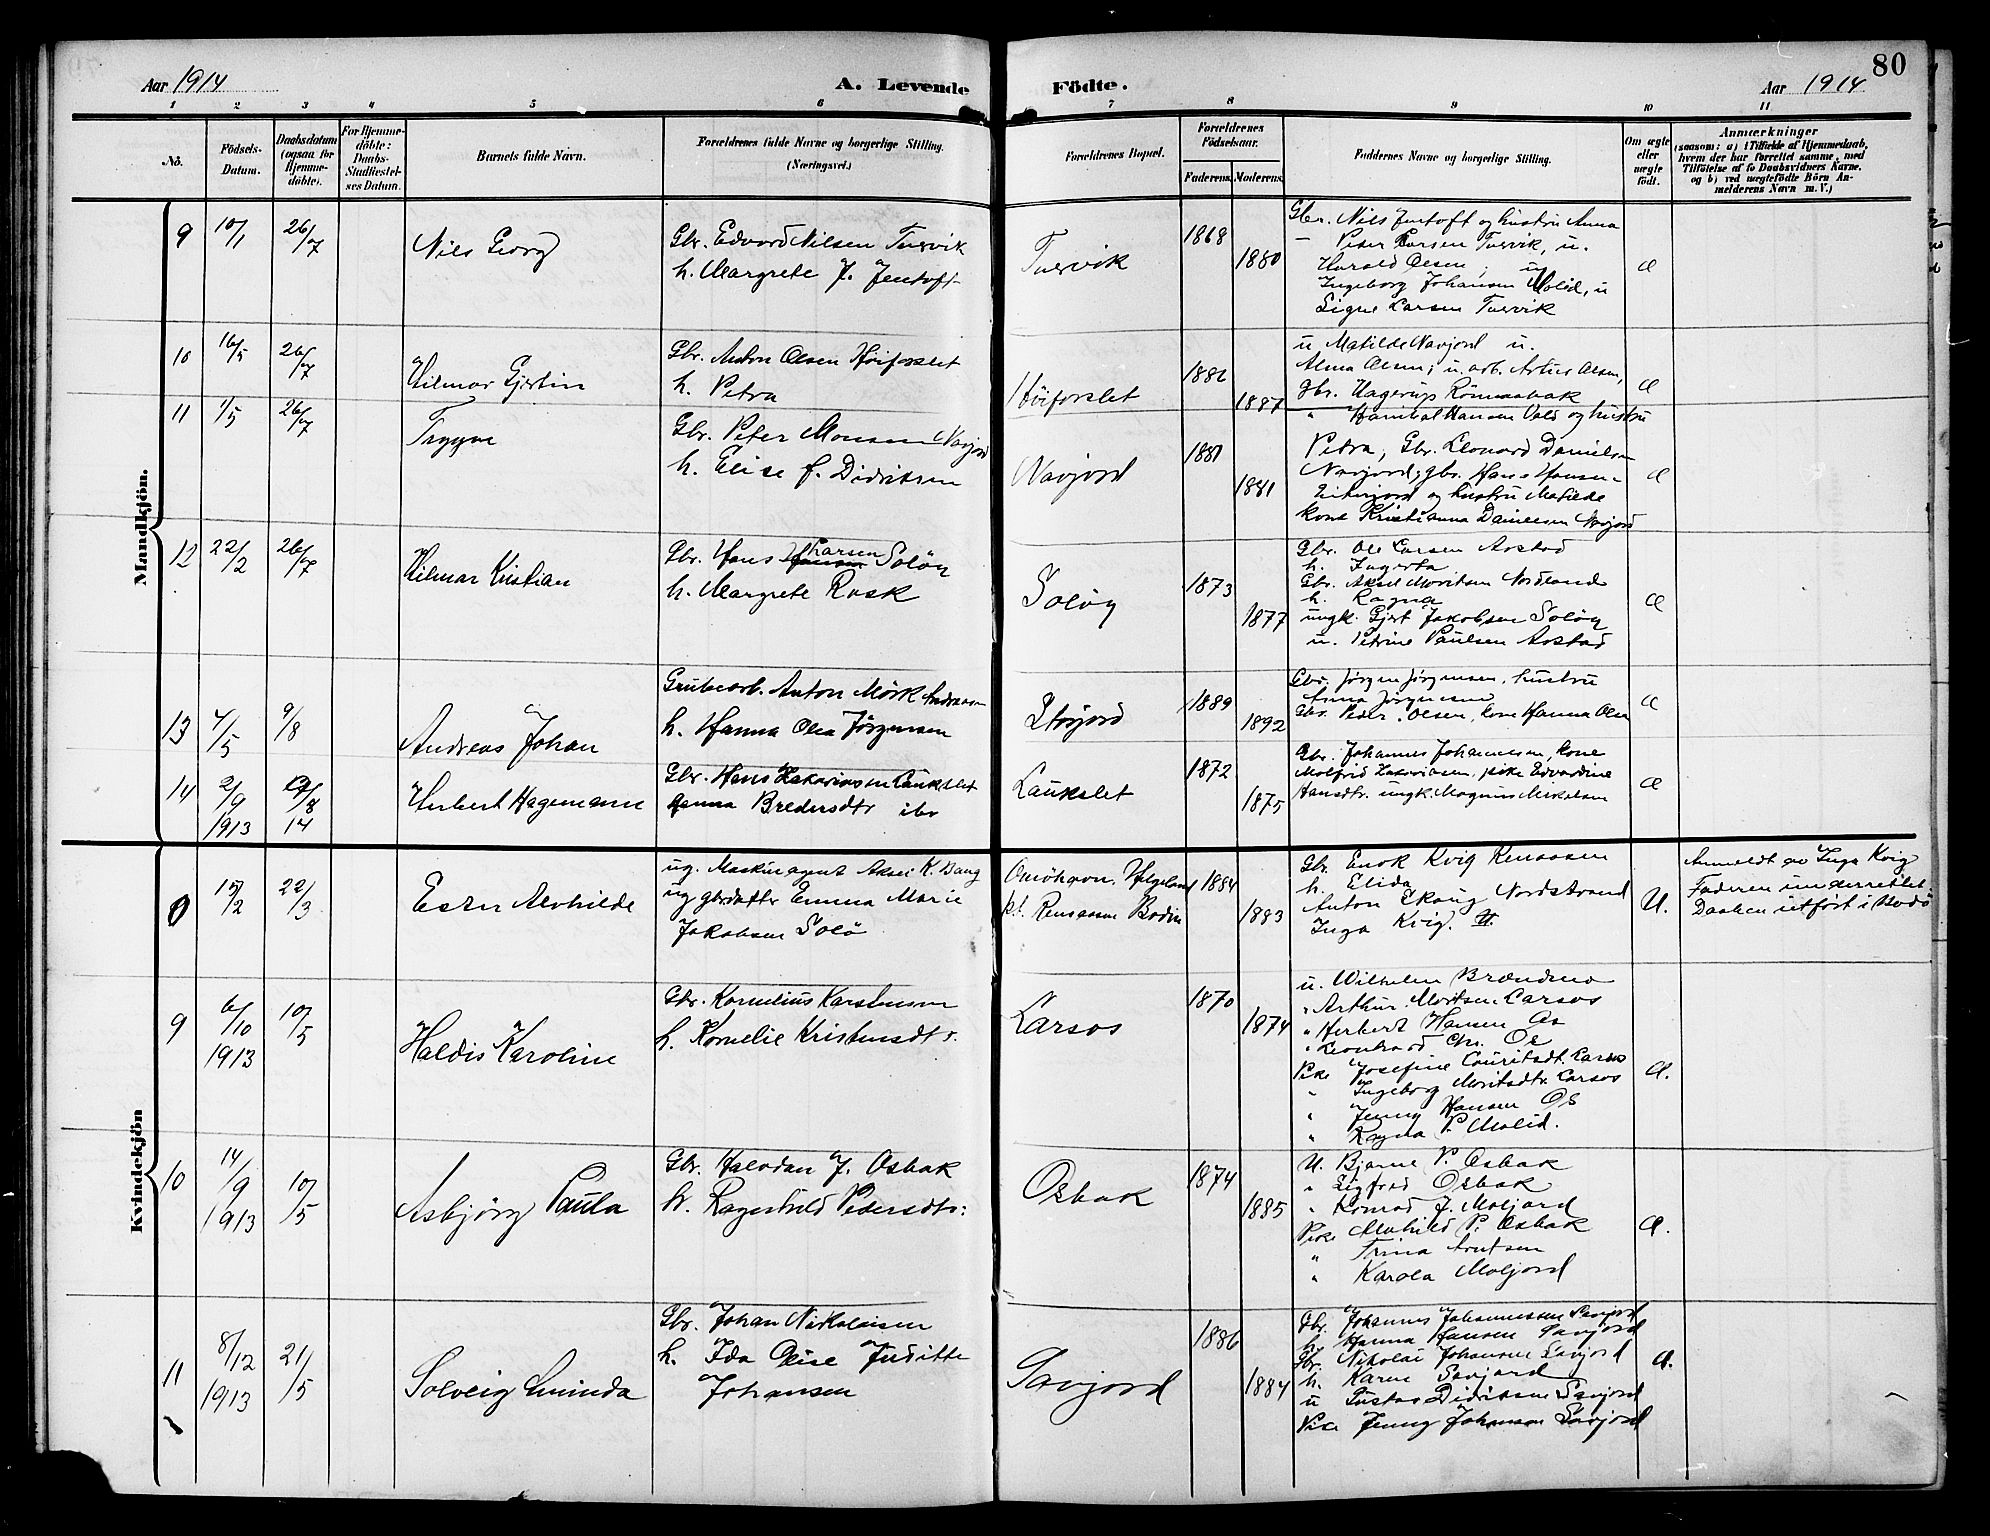 80
Aar 1914
A. Levende
Födte.
Aar 1914
1 2 3 4 5 6 7 8 9 10 11
No.
Födsels-
Datum.
Daabsdatum
(ogsaa for
Hjemme-
döbte).
For Hjemme-
döbte:
Daabs-
Stadfæstel-
ses Datum.
Barnets fulde Navn.
Forældrenes fulde Navne og borgerlige Stilling.
(Næringsvei.)
Forældrenes Bopæl.
Forældrenes
Födselsaar.
Faderens.
Moderens.
Faddernes Navne og borgerlige Stilling.
Om ægte
eller
uægte
födt.
Anmærkninger
(saasom: a) i Tilfælde af Hjemmedaab,
hvem der har forrettet samme, med
Tilföielse af to Daabsvidners Navne,
og b) ved uægtefödte Börn An-
melderens Navn m. V.)
Mandkjön.
9
10/1
26/7
Nils Georg
Gbr. Edvard Nilsen Tuervik
h. Margrete J. Jentoft
Tuervik
1868
1880
Gbr. Nils Jentoft og hustru Anna
Peder Larsen Tuervik, u.
Harald Olsen, u
Ingeborg Johansen Molid, u
Signe Larsen Tuervik
10
16/5
26/7
Hilmar Gjertin
Gbr. Anton Olsen Höiforslet
h. Petra
Höiforslet
1886
1887
u Matilde Navjord u.
Alma Olsen; u. arb. Artur Olsen,
gbr. Hagerup
11
1/5
26/7
Trygve
Gbr. Peter Monsen Navjord
h. Elise f. Didriksen
Navjord
1881
1881
" Hanibal Hansen Vold og hustru
Petra, Gbr. Leonard Danielsen
Navjord; gbr. Hans Hansen
og hustru Matilde
kone Kristianna Danielsen Navjord
12
22/2
26/7
Hilmar Kristian
Gbr. Hans Larsen Solöy
h. Margrete Rask
Solöy
1873
1877
Gbr. Ole Larsen Arstad
h. Ingerta
Gbr. Aksel Moritsen Nordland
h. Ragna
ungk. Gjert Jakobsen Solöy
u. Petrine Paulsen Arstad
13
7/5
9/8
Andreas Johan
Grubearb. Anton Mörk Andreasen
h. Hanna Olea Jörgensen
Storjord
1889
1892
Gbr. Jörgen Jörgensen, hustru
Anna Jörgensen
Gbr. Peder Olsen, kone Hanna Olsen
14
2/9
1913
9/8
14
Herbert Hagemann
Gbr. Hans Zakariasen Laukslet
Hanna Bredersdtr ibr
Laukslet
1872
1875
Gbr. Johannes Johannesen, kone
Molfrid Zakariasen, pike Edvardine
Hansdtr. ungk. Magnus Mikalsen
Kvindekjön
15/2
22/3
Ester Alvhilde
ug. Maskinagent Aksel K. Bang
ug gbrdatter Emma Marie
Jakobsen Solö
Helgeland
pt. Renaasen Bodin
1884
1883
Gbr. Enok Kvig Renaasen
h. Elida
Anton Skaug Nordstrand
Inga Kvig.
U.
Anmeldt av Inga Kvig
Faderen underrettet.
Daaben utfört i Bodö
9
6/10
1913
10/5
Haldis Karoline
Gbr. Kornelius Karstensen
h. Kornelie Kristensdtr.
Larsos
1870
1874
u. Wilhelm Brændmo
" Arthur Moritsen Larsos
" Herbert Hansen Os
" Leonhard Chr. Os
Pike Josefine Lauritsdt. Larsos
" Ingeborg Moritsdtr Larsos
" Jenny Hansen Os
" Ragna P. Molid.
10
14/9
1913
10/5
Asbjörg Paula
Gbr. Halvdan J. Osbak
h. Ragnhild Pedersdtr:
Osbak
1874
1885
U. Bjarne P. Osbak
" Sigfred Osbak
" Konrad J. Moljord
Pike Alvhild P. Osbak
" Trina Arntsen
" Karola Moljord
11
8/12
1913
21/5
Solveig Lminda
Gbr. Johan Nikolaisen
h. Ida Elise Juditte
Johansen
Savjord
1886
1884
Gbr. Johannes Johannessen Savjord
h. Hanna Hansen Savjord
Gbr. Nikolai Johansen Savjord
h. Karen Savjord
u Gustav Didriksen Savjord
Pike Jenny Johansen Savjord